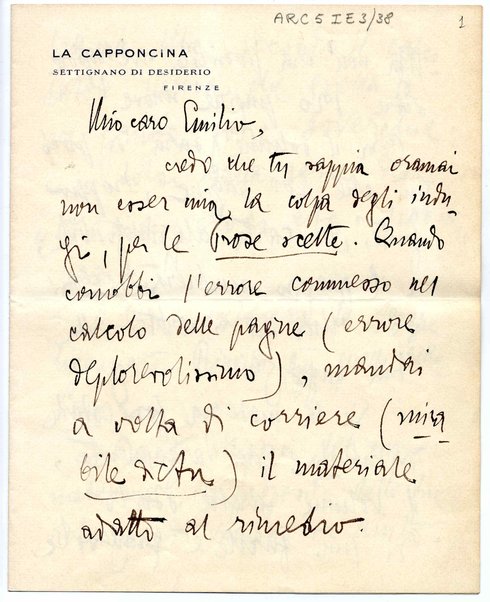 ARC 5 I E 3/38
1
LA CAPPONCINA
SETTIGNANO DI DESIDERIO
FIRENZE
Mio caro Emilio,
credo che tu sappia oramai
non esser mia la colpa degli indu-
gi, per le Prose scelte. Quando
conobbi l'errore commesso nel
calcolo delle pagine (errore
deplorevolissimo), mandai
a volta di corriere (mira
bile dictu) il materiale
adatto al rimedio.